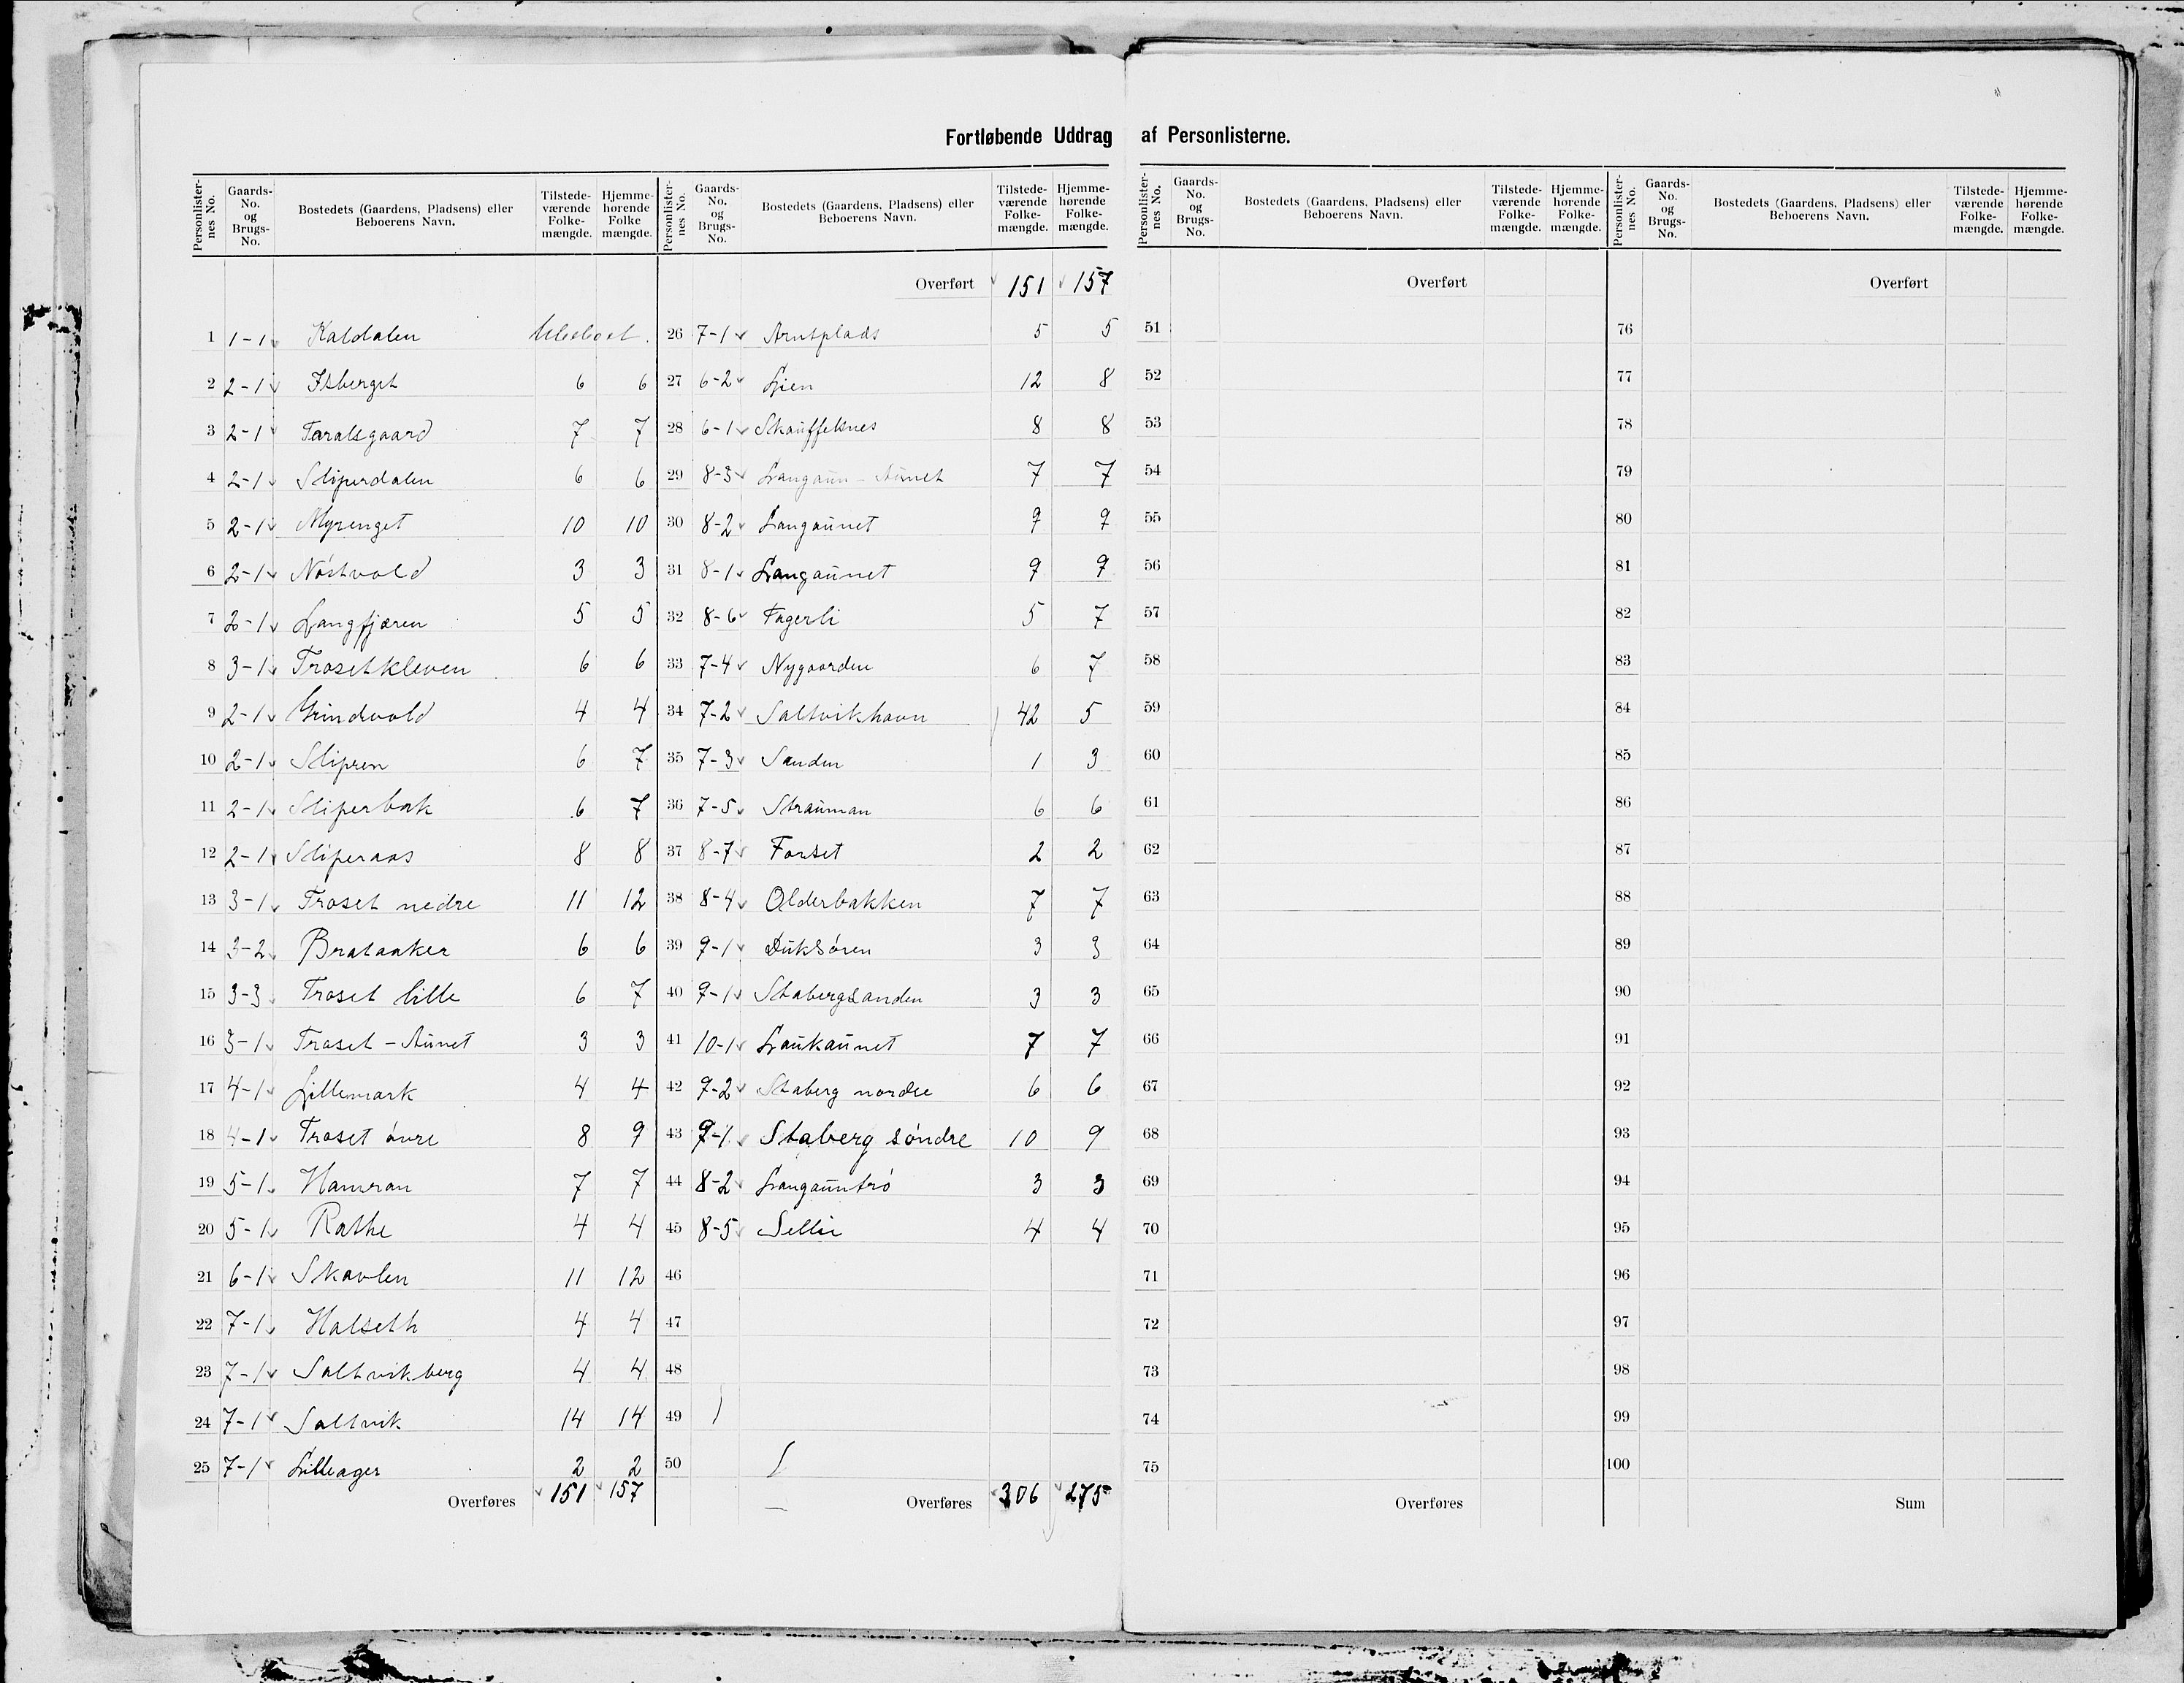 Fortløbende Uddrag af Personlisterne.
Personlisternes No. Gaards-No. og Brugs-No. Bostedets (Gaardens, Pladsens) eller Beboerens Navn. Tilstedeværende Folkemængde. Hjemmehørende Folkemængde.
1 1-1 Kaldalen Ubeboet.
2 2-1 Isberget 6 6
3 2-1 Taralsgaard 7 7
4 2-1 Sliperdalen 6 6
5 2-1 Myrenget 10 10
6 2-1 Nóstvold 3 3
7 2-1 Langfjæren 5 5
8 3-1 Trosetkleven 6 6
9 2-1 Grindvold 4 4
10 2-1 Slipren 6 7
11 2-1 Sliperbak 6 7
12 2-1 Sliperaas 8 8
13 3-1 Troset nedre 11 12
14 3-2 Brataaker 6 6
15 3-3 Troset lille 6 7
16 3-1 Troset - Aunet 3 3
17 4-1 Lillemark 4 4
18 4-1 Troset óvre 8 9
19 5-1 Hamran 7 7
20 5-1 Rathe 4 4
21 6-1 Skavlen 11 12
22 7-1 Halseth 4 4
23 7-1 Saltvikberg 4 4
24 7-1 Saltvik 14 14
25 7-1 Lilleager 2 2
Overføres 151 157
Personlisternes No. Gaards-No. og Brugs-No. Bostedets (Gaardens, Pladsens) eller Beboerens Navn. Tilstedeværende Folkemængde. Hjemmehørende Folkemængde.
Overført 151 157
26 7-1 Arntplads 5 5
27 6-2 Lien 12 8
28 6-1 Skauffelsnes 8 8
29 8-3 Langaun - Aunet 7 7
30 8-2 Langaunet 9 9
31 8-1 Langaunet 9 9
32 8-6 Fagerli 5 7
33 7-4 Nygaarden 6 7
34 7-2 Saltvikhavn 42 5
35 7-3 Sanden 1 3
36 7-5 Strauman 6 6
37 8-7 Forset 2 2
38 8-4 Olderbakken 7 7
39 9-1 Duksóren 3 3
40 9-1 Stabergsanden 3 3
41 10-1 Laukaunet 7 7
42 9-2 Staberg nordre 6 6
43 9-1 Staberg sóndre 10 9
44 8-2 Langauntró 3 3
45 8-5 Selli 4 4
46
47
48
49
50
Overføres 306 275
Personlisternes No. Gaards-No. og Brugs-No. Bostedets (Gaardens, Pladsens) eller Beboerens Navn. Tilstedeværende Folkemængde. Hjemmehørende Folkemængde.
Overført
51
52
53
54
55
56
57
58
59
60
61
62
63
64
65
66
67
68
69
70
71
72
73
74
75
Overføres
Personlisternes No. Gaards-No. og Brugs-No. Bostedets (Gaardens, Pladsens) eller Beboerens Navn. Tilstedeværende Folkemængde. Hjemmehørende Folkemængde.
Overført
76
77
78
79
80
81
82
83
84
85
86
87
88
89
90
91
92
93
94
95
96
97
98
99
100
Sum